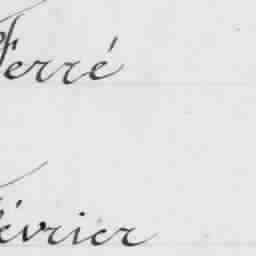 Ferré
Février